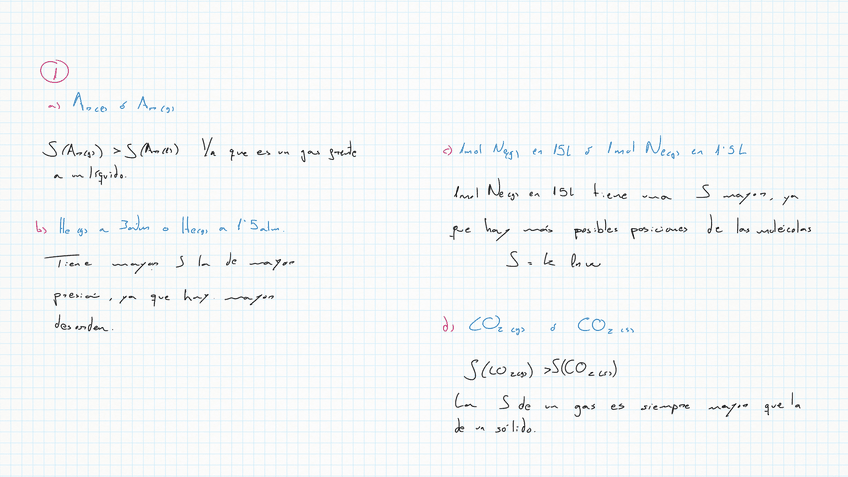 1
a) Ar(l) ó Ar(g)
S(Ar(g)) > S(Ar(l)) Ya que es un gas frente
a un líquido.
b) He(g) a 3atm o He(g) a 1'5atm.
Tiene mayor S la de mayor
presión, ya que hay mayor
desorden.
c) 1mol Ne(g) en 15L ó 1mol Ne(g) en 1'5L
1mol Ne(g) en 15L tiene una S mayor, ya
que hay más posibles posiciones de las moléculas
S = k ln w
d) CO2 (g) ó CO2 (s)
S(CO2(g)) > S(CO2(s))
La S de un gas es siempre mayor que la
de un sólido.